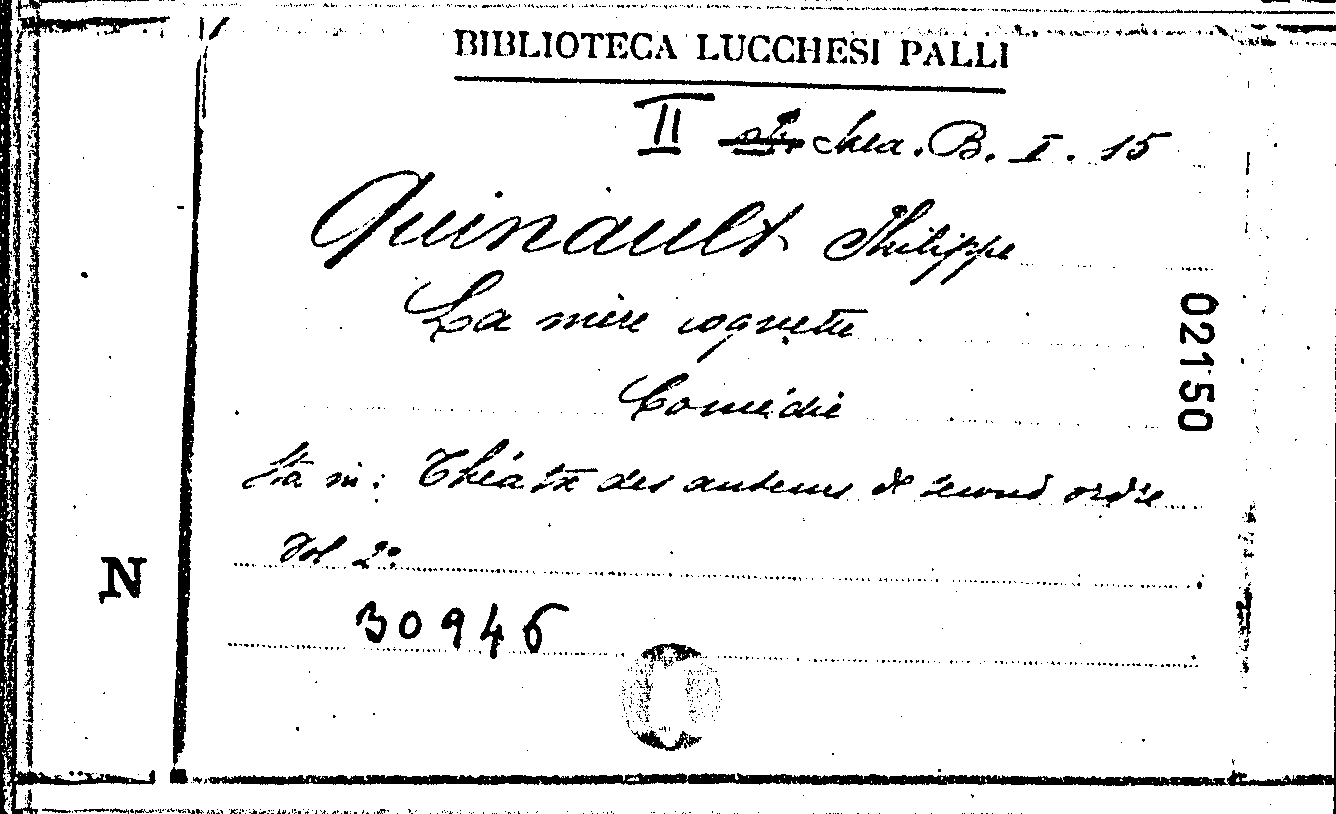 BIBLIOTECA LUCCHESI PALLI
II Mea. B. I. 15
Quinault Philippe
La mère coquette
Comédie
Sta in: Théatre des auteurs de second ordre
Vol 2º
30946
N
02150